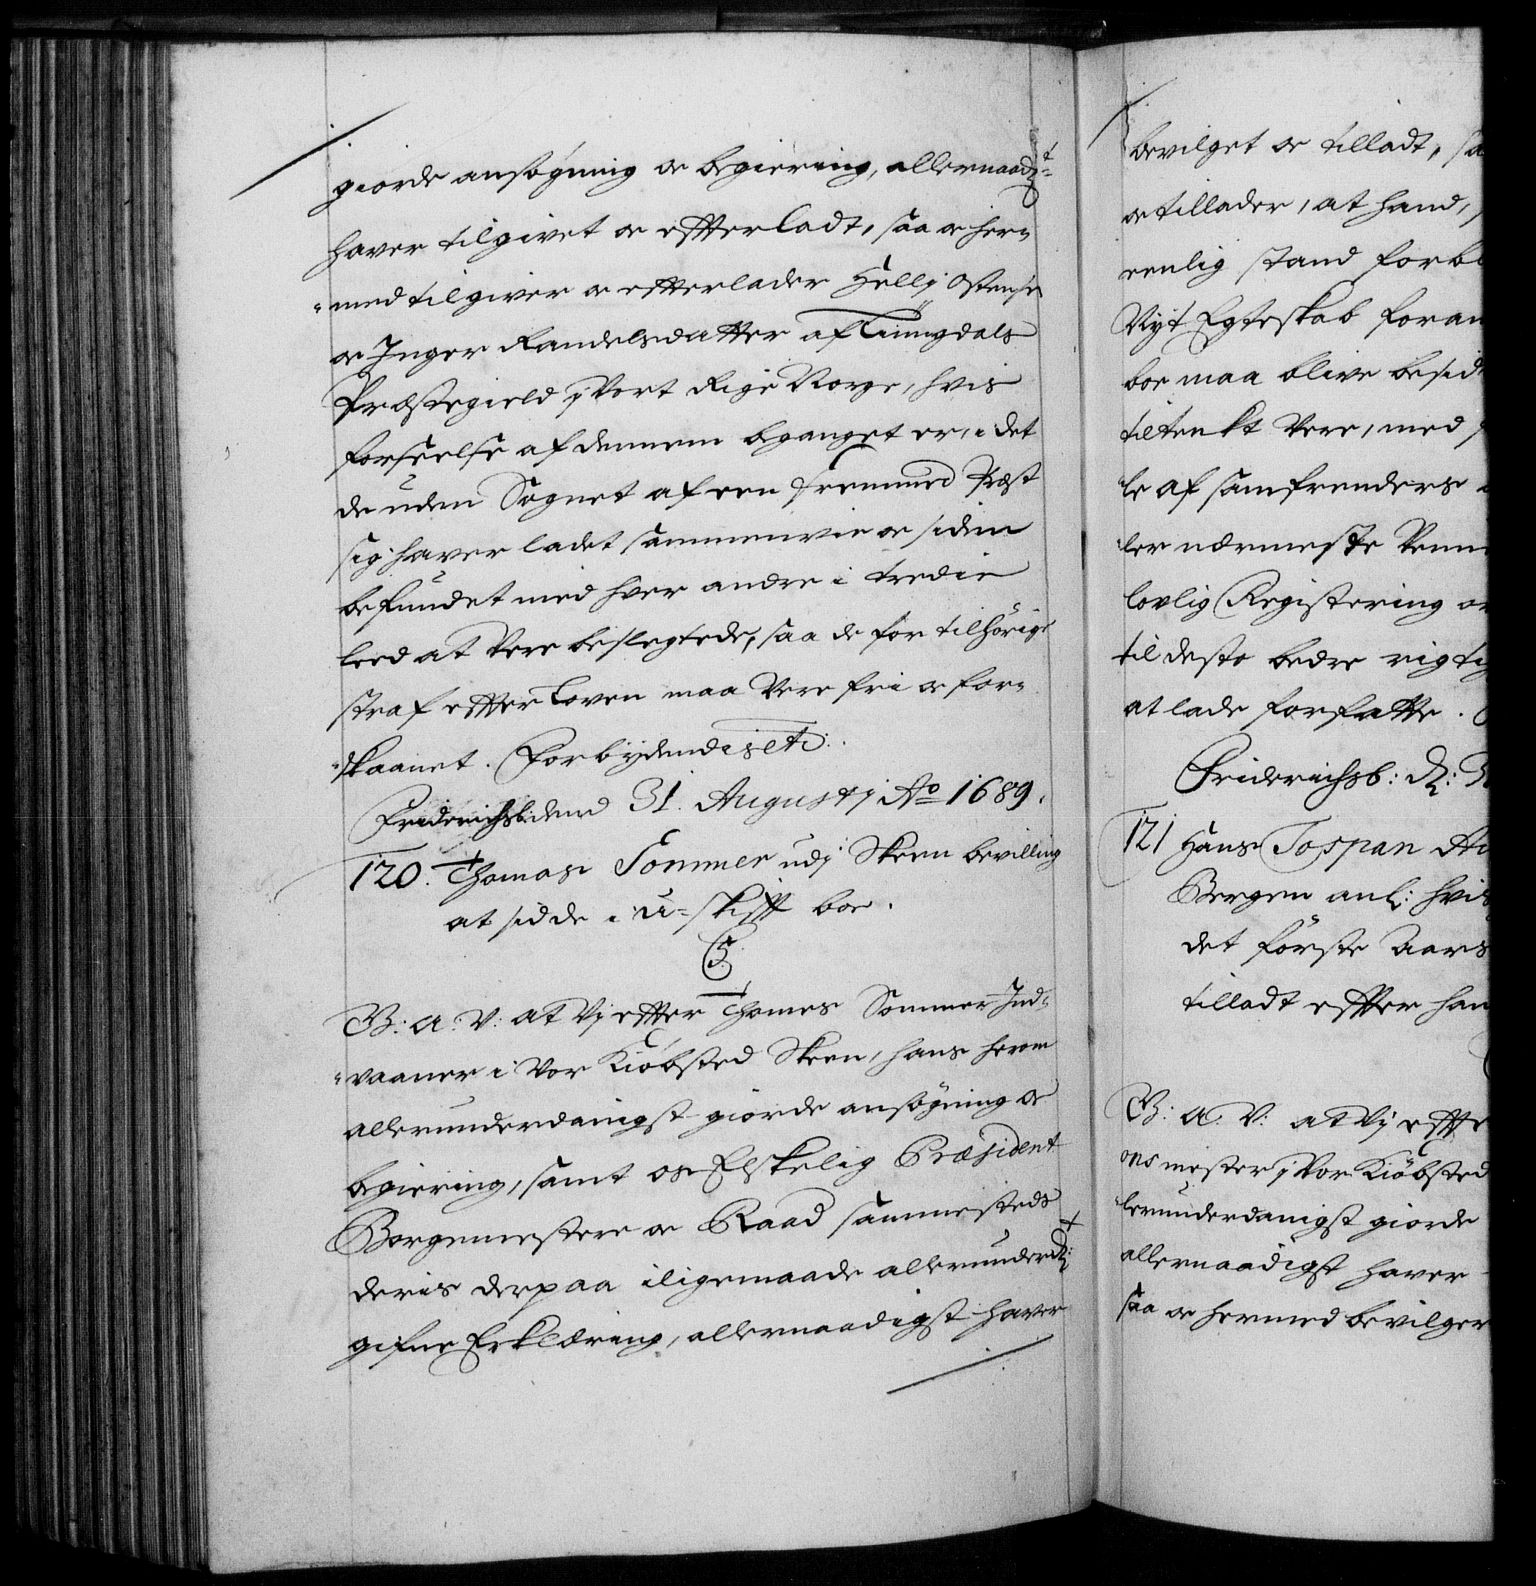 giorde ansøgning oc begiering, allernaadst
haver tilgivet oc effterladt, saa oc her-
-med tilgiver oc effterlader Hellj Ostensø
oc Inger Randelsdatter af Tinngdals
Præstegield j Vort Rige Norge, hvis
forseelse af dennem begaaget er, i det
de uden Sognet af een fremmed Præst
sig haver ladet sammenvie oc siden
befundet med hver andre i tredie
leed at Vere beslegtede, saa de for tilhörige
straf effter Loven maa Vere fri oc for-
-skaanet. Forbydendis etc:
Friderichsb: dend 31. Augustj Ao 1689.
120. Thomas Sommer udj Skeen bevilling
at sidde i u-skifft boe.
C5
G: A: V: at Vj effter Thomes Sommer Ind-
-vaaner i Vor Kiöbsted Skeen, hans herom
allerunderdanigst giorde ansøgning oc
begiering, samt os Elskelig Præsident
Borgemestere oc Raad sammesteds
deris derpaa iligemaade allerunderdt:
gifne Erklæring, allernaadigst haver
bevilget oc tilladt, sa
oc tillader, at hand,
eenlig stand forbl
Nyt Egteskab foran
boe maa blive besid
tiltenkt Vere, med
le af samfrenders
ler nærmeste Venn
lovlig Registering oc
til desto bedre rigtig
at lade forfatte.
Friderichsb: d: 3
121 Hans Tospan
Bergen anl: hvis
det förste Aars
tilladt effter han
G: A: V: at Vj effte
ons mester j Vor Kiöbsted
lerunderdanigst giorde
allernaadigst haver
saa oc hermed bevilger